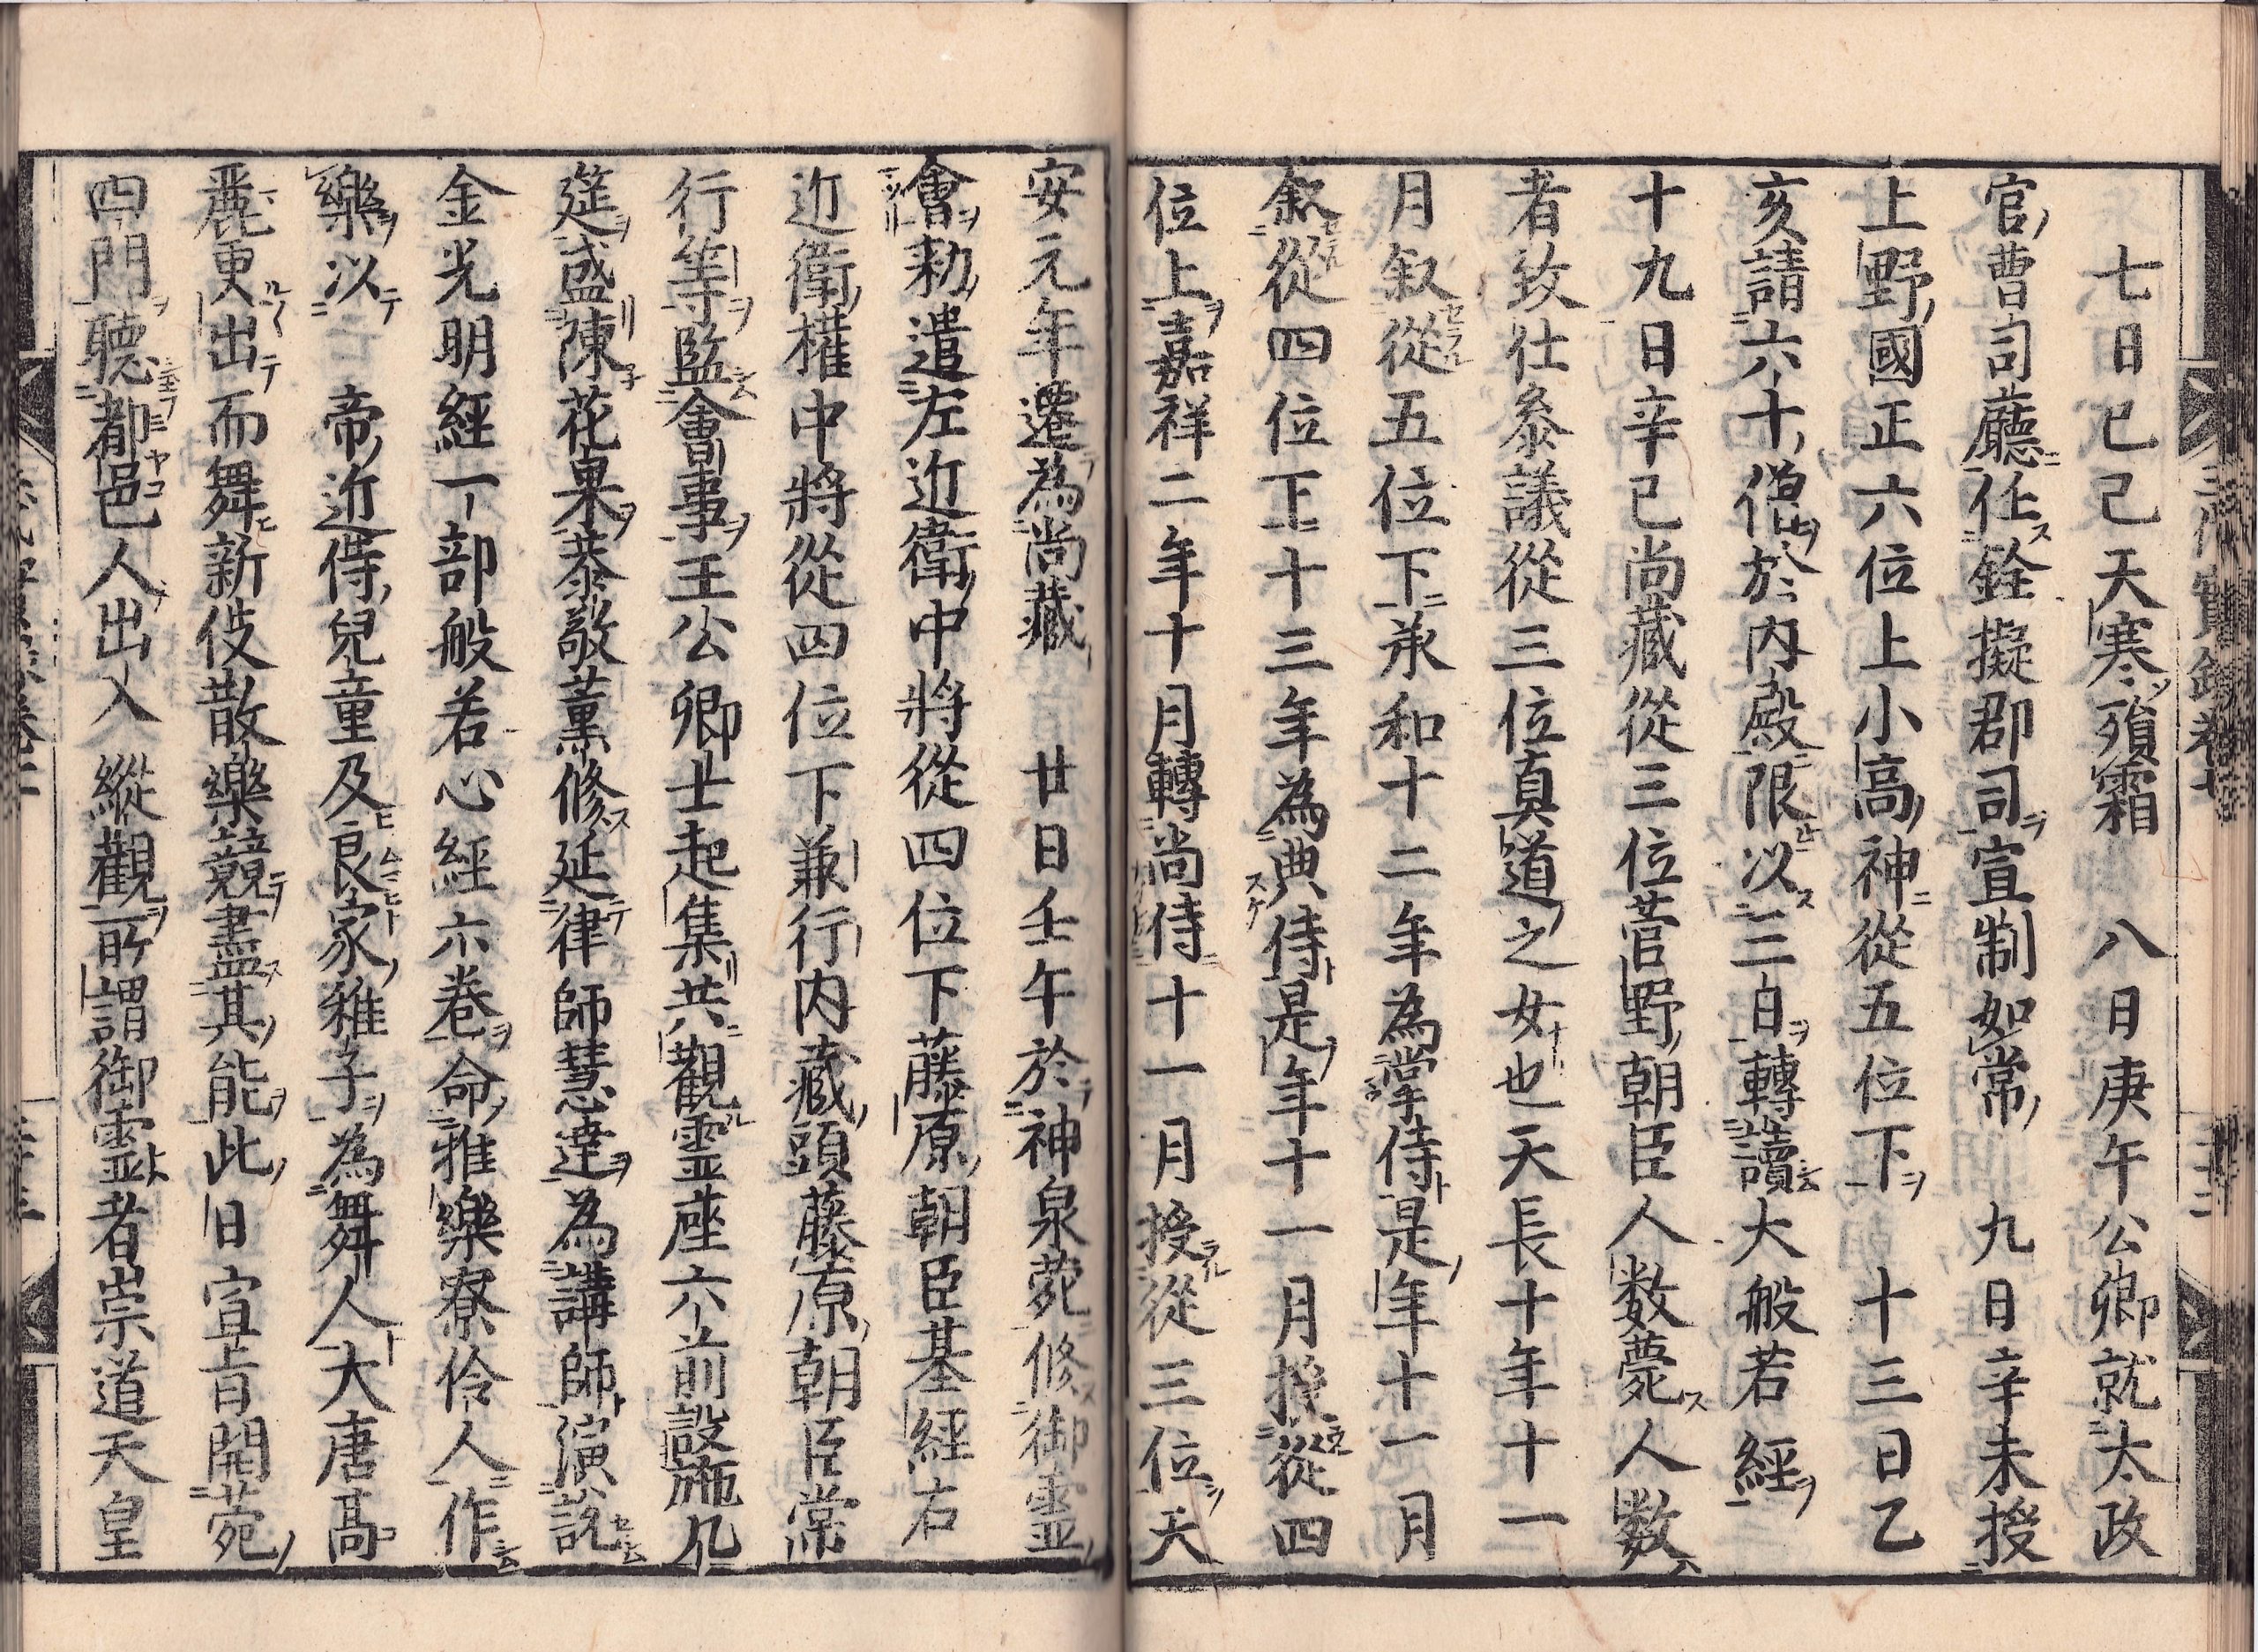 七日己巳天寒殞霜　八日庚午公卿就太政
官曹司廳任銓擬郡司宣制如常　九日辛未授
上野國正六位上小高神從五位下　十三日乙
亥請六十僧於内殿限以三日轉讀大般若經
十九日辛巳尚藏從三位菅野朝臣人数薨人数
者致仕叅議從三位真道之女也天長十年十一
月叙從五位下承和十二年為掌侍是年十一月
叙從四位下十三年為典侍是年十一月授從四
位上嘉祥二年十月轉尚侍十一月授從三位天
安元年遷為尚藏　廿日壬午於神泉苑修御霊
會勅遣左近衛中將從四位下藤原朝臣基經右
近衛權中將從四位下兼行内藏頭藤原朝臣常
行等監會事王公卿士起集共觀霊座六前設施几
筵盛陳花果恭敬薫修延律師慧達為講師演說
金光明經一部般若心經六卷命雅樂寮伶人作
樂以　帝近侍兒童及良家稚子為舞人大唐髙
麗更出而舞新伎散樂競盡其能此日宣旨開苑
四門聽都邑人出入縱觀所謂御霊者崇道天皇